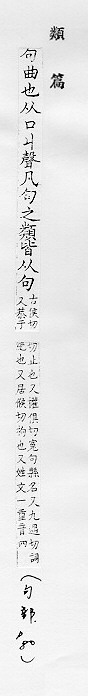 類篇
句曲也从口丩聲凡句之類皆从句
古侯切
又恭于
切止也又權俱切寃句縣名又九遇切詞
絶也又居候切拘也又姓文一重音四
(句部,